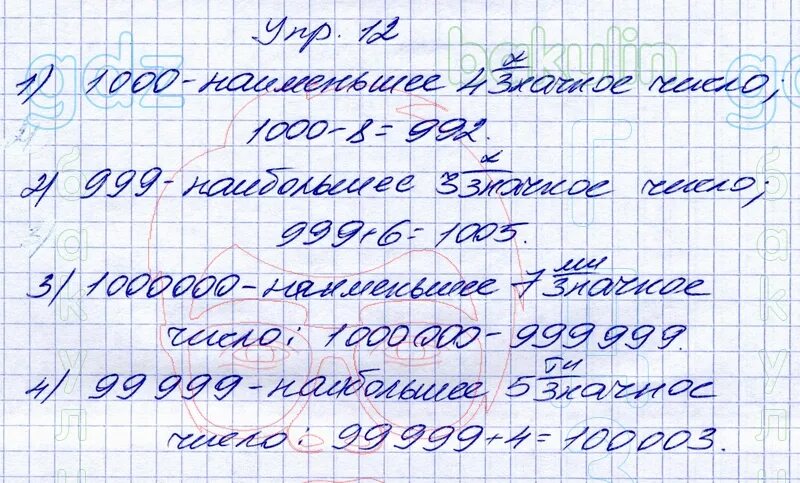 Упр. 12
1) 1000-наименьшее 4хзначное число;
1000-8=992.
2) 999-наибольшее 3хзначное число;
999+6=1005.
3) 1000000-наименьшее 7мизначное
число; 1000000-999999.
4) 99999-наибольшее 5тизначное
число; 99999+4=100003.
gdz
bakulin
gdz
бакулин